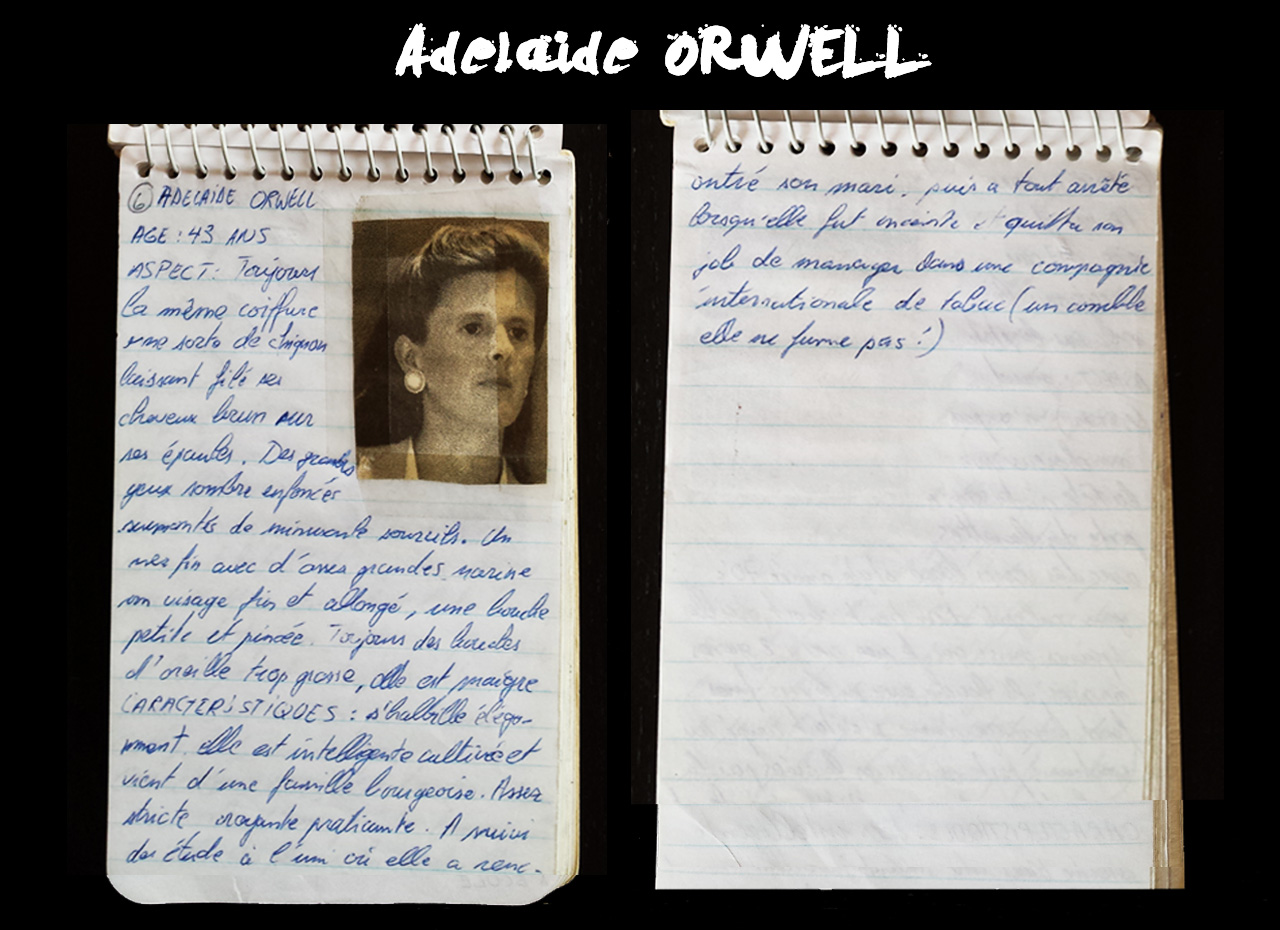 Adelaide ORWELL
6 ADELAIDE ORWELL
AGE : 43 ANS
ASPECT : Toujours
la même coiffure
une sorte de chignon
laissant filé ses
cheveux brun sur
ses épaules. Des grands
yeux sombre enfoncés
surmontés de minuscule sourcils. Un
nez fin avec d'assez grandes narine
un visage fin et allongé, une bouche
petite et pincée. Toujours des boucles
d'oreille trop grosse, elle est maigre
CARACTERISTIQUES : s'habille éléga-
mment. elle est intelligente cultivée et
vient d'une famille bourgeoise. Assez
stricte croyante pratiquante. A suivi
des étude à l'uni où elle a renc-
ontré son mari. puis a tout arrêté
lorsqu'elle fut enceinte et quitta son
job de manager dans une compagnie
internationale de tabac (un comble
elle ne fume pas !)